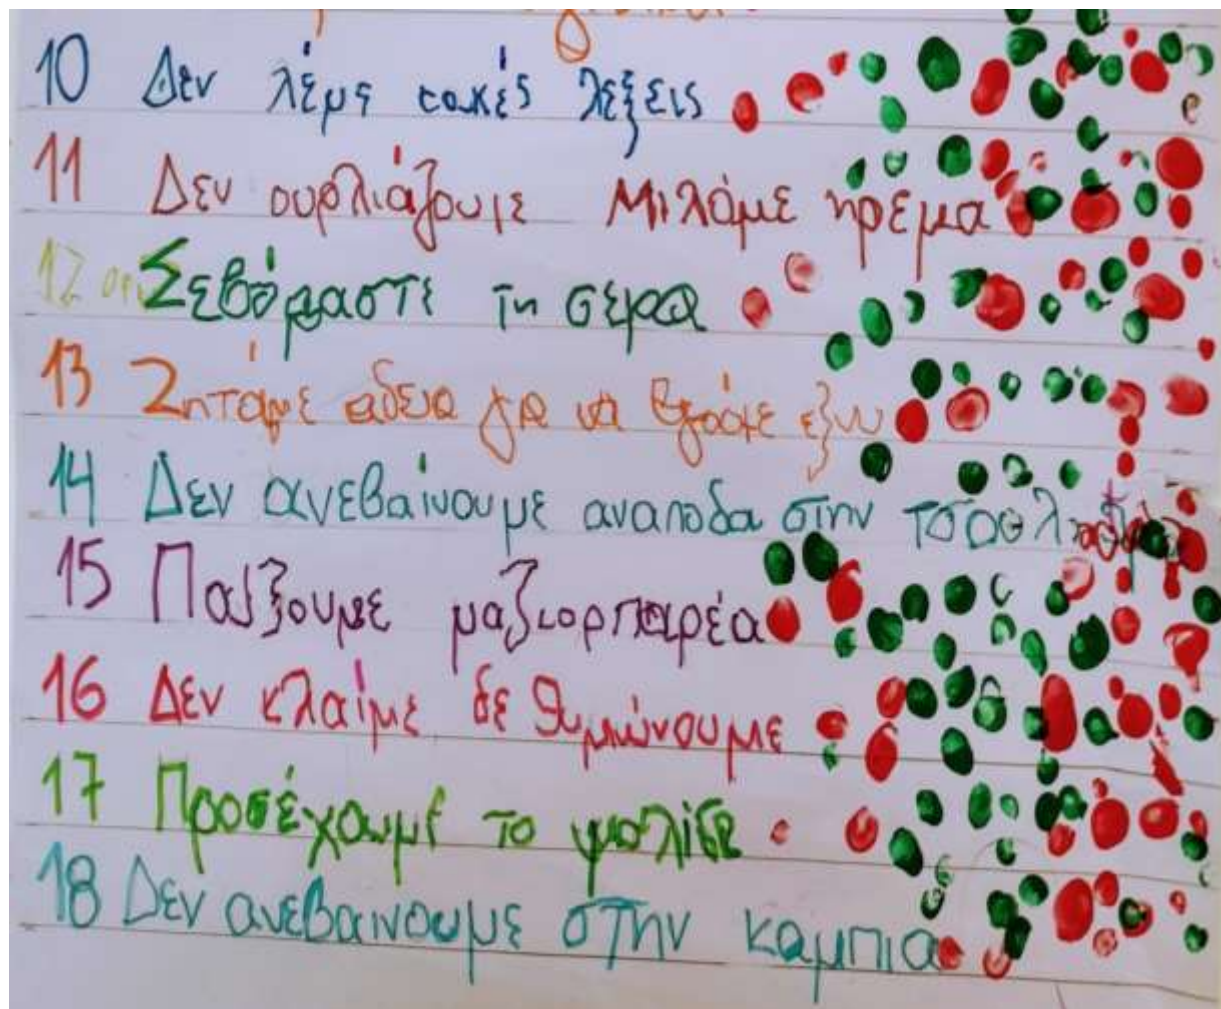 10 Δεν λέμε κακές λέξεις
11 Δεν ουρλιάζουμε Μιλάμε ηρεμα
12 Σεβόμαστε τη σειρα
13 Ζητάμε αδεια για να βγούμε εξω
14 Δεν ανεβαίνουμε αναποδα στην τσουλήθρα
15 Παίζουμε μαζι παρέα
16 Δεν κλαίμε δε θυμώνουμε
17 Προσέχουμε το ψαλίδι
18 Δεν ανεβαινουμε στην καμπια